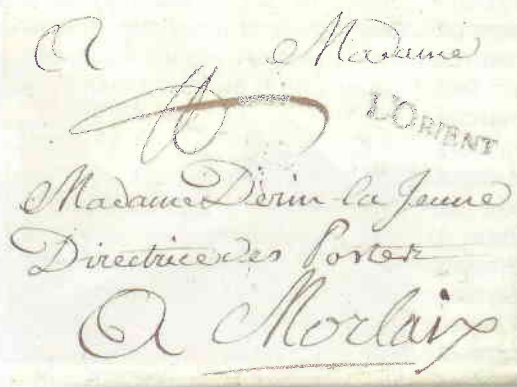 A Madame
L'ORIENT
Madame Derin la Jeune
Directrice des Postes
A Morlaix